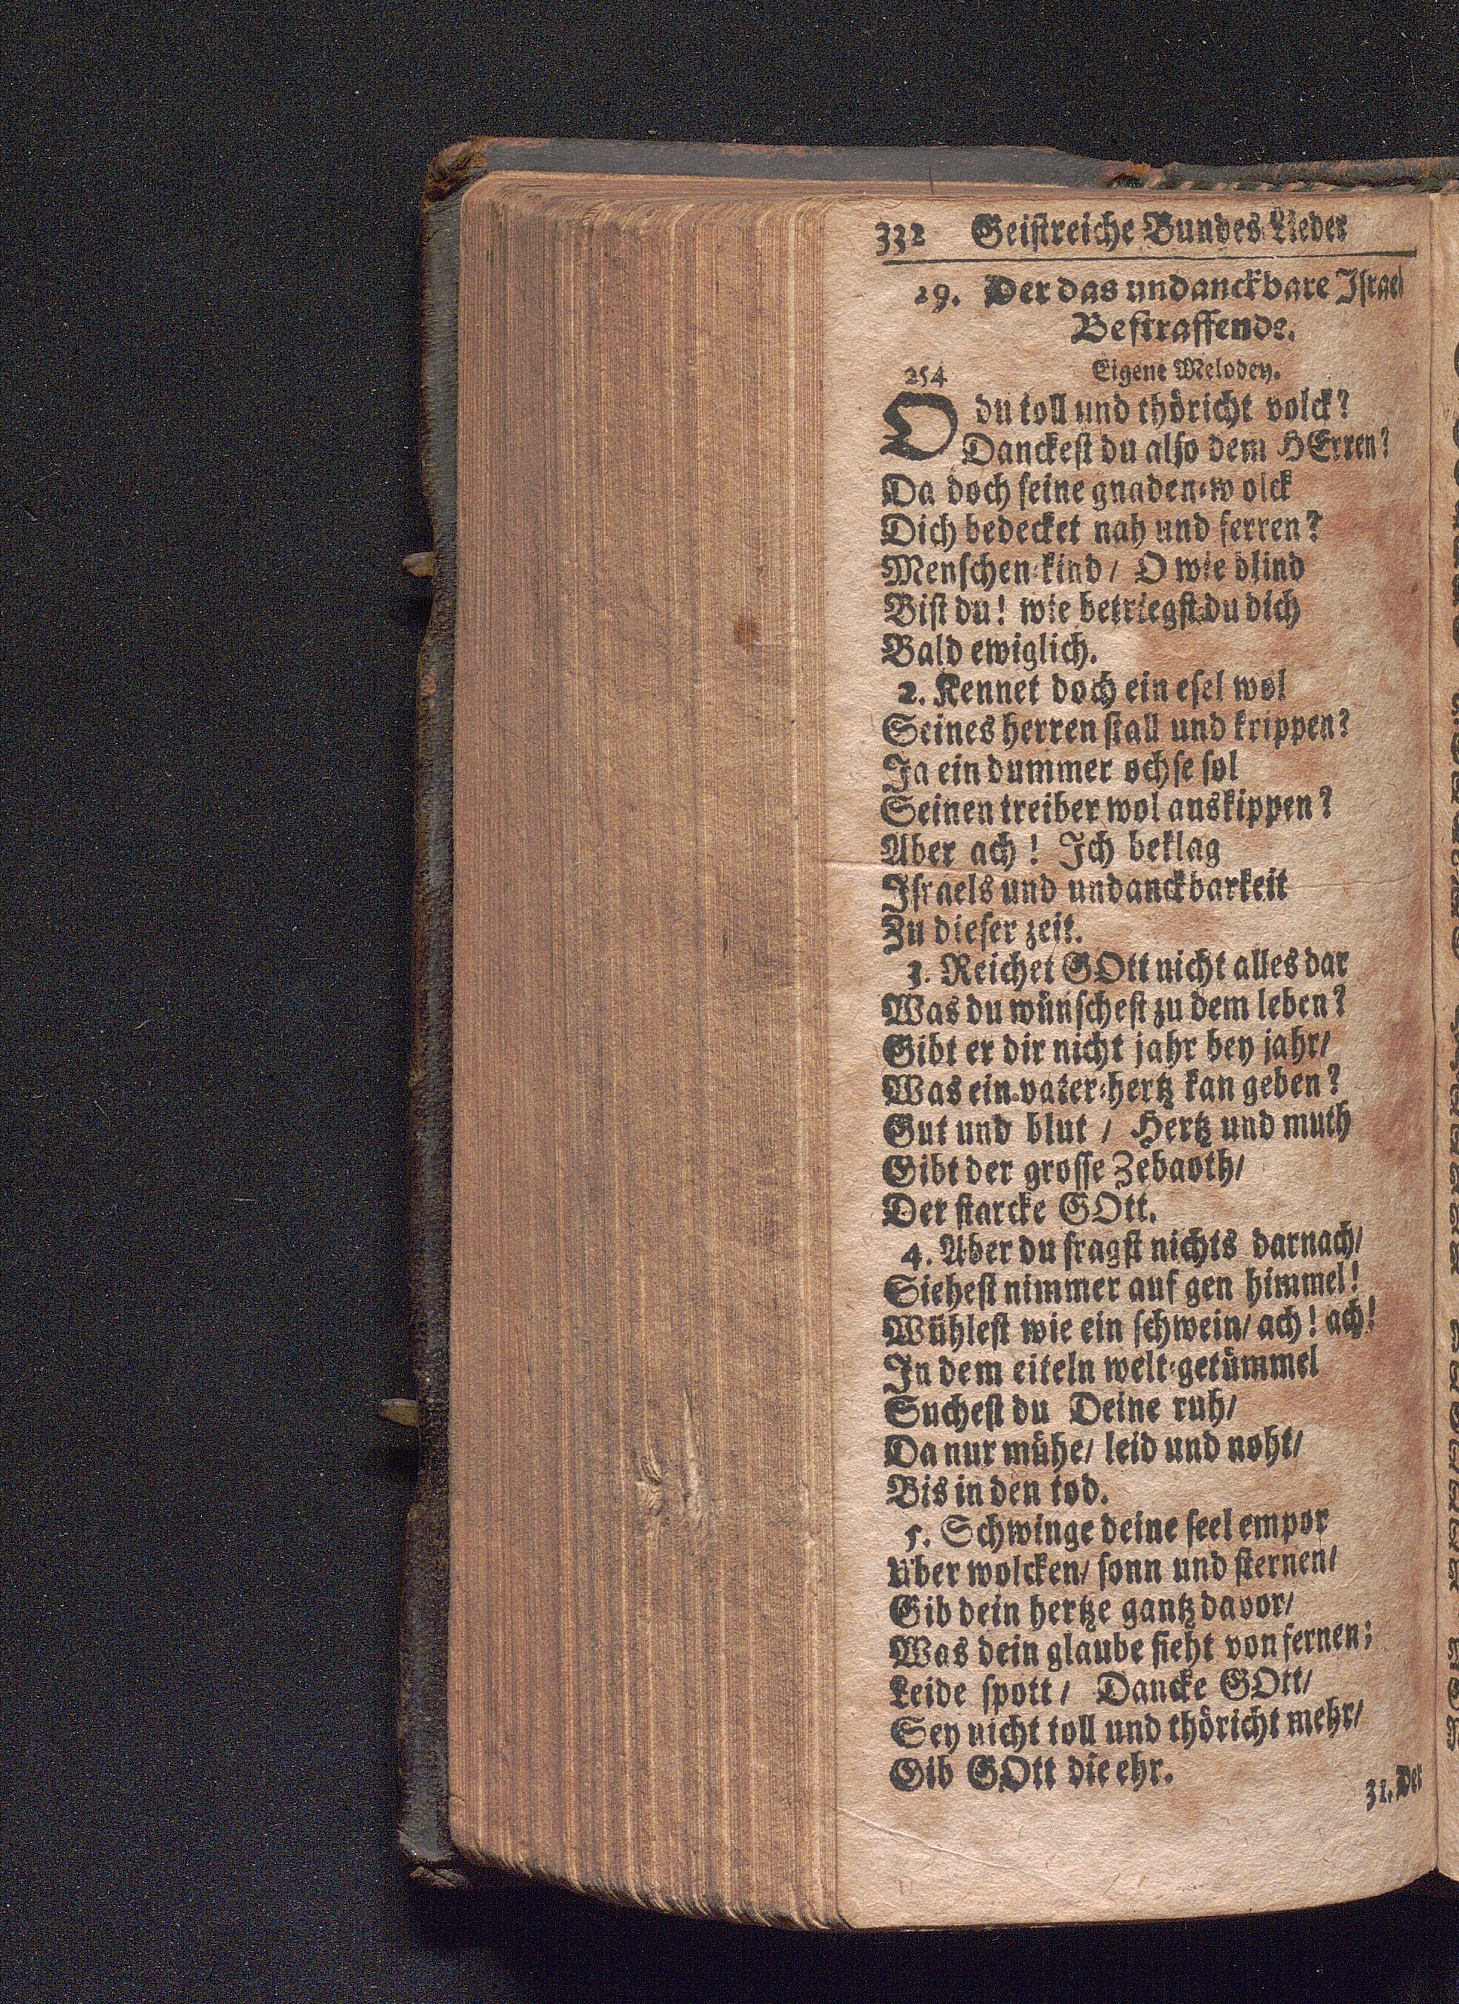 332 Geistreiche Bundes Lieder
29. Der das undanckbare Israel
Bestraffende.
254 Eigene Melodey.
O du toll und thöricht volck?
Danckest du also dem HErren?
Da doch seine gnaden-wolck
Dich bedecket nah und ferren?
Menschen-kind / O wie blind
Bist du! wie betriegst du dich
Bald ewiglich.
2. Kennet doch ein esel wol
Seines herren stall und krippen?
Ja ein dummer ochse sol
Seinen treiber wol auskippen?
Aber ach! Ich beklag
Israels und undanckbarkeit
Zu dieser zeit.
3. Reichet GOtt nicht alles dar
Was du wünschest zu dem leben?
Gibt er dir nicht jahr bey jahr/
Was ein vater-hertz kan geben?
Gut und blut / Hertz und muth
Gibt der grosse Zebaoth/
Der starcke GOtt.
4. Aber du fragst nichts darnach/
Siehest nimmer auf gen himmel!
Wühlest wie ein schwein/ ach! ach!
In dem eiteln welt-getümmel
Suchest du Deine ruh/
Da nur mühe/ leid und noht/
Bis in den tod.
5. Schwinge deine seel empor
Über wolcken/ sonn und sternen/
Gib dein hertze gantz davor/
Was dein glaube sieht von fernen;
Leide spott / Dancke GOtt/
Sey nicht toll und thöricht mehr/
Gib GOtt die ehr.
31. Der